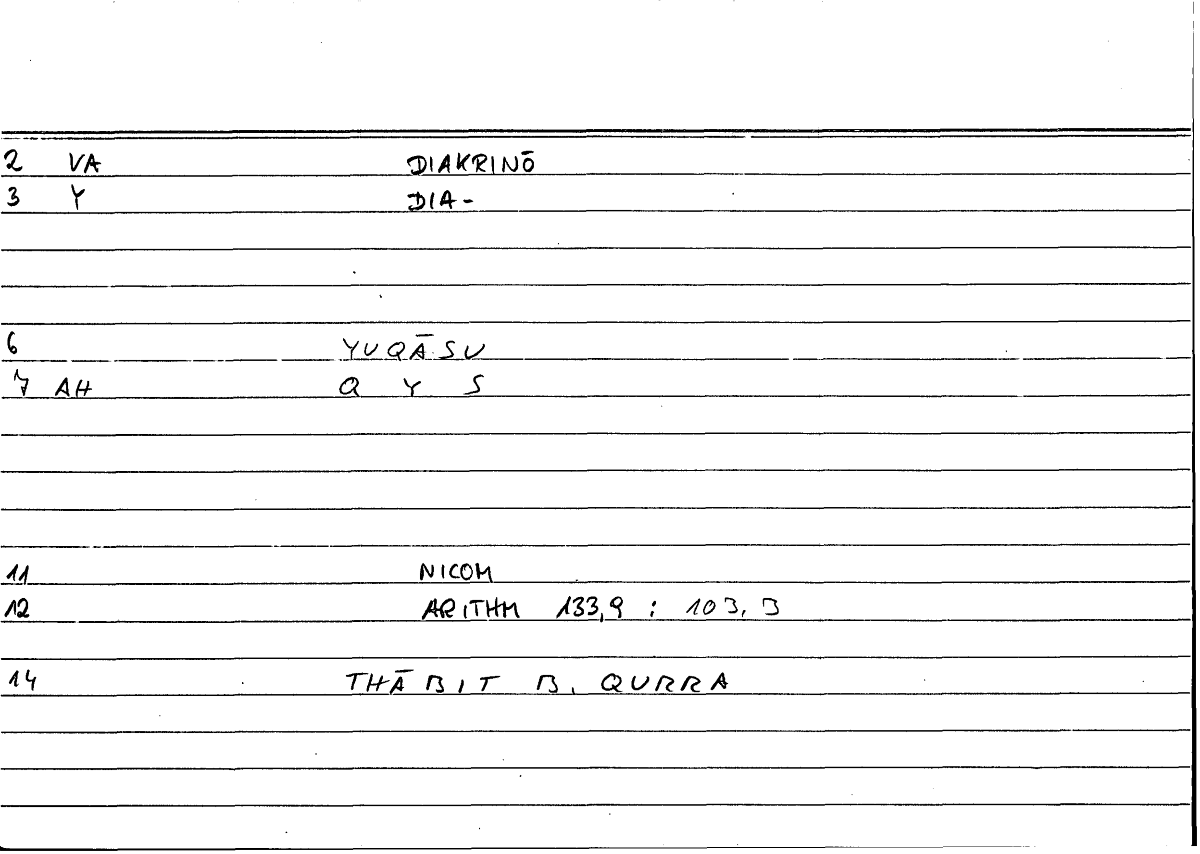 2 VA DIAKRINŌ
3 Y DIA-
6 YUQĀSU
7 AH Q Y S
11 NICOM
12 ARITHM 133,9 : 103,3
14 THĀBIT B. QURRA